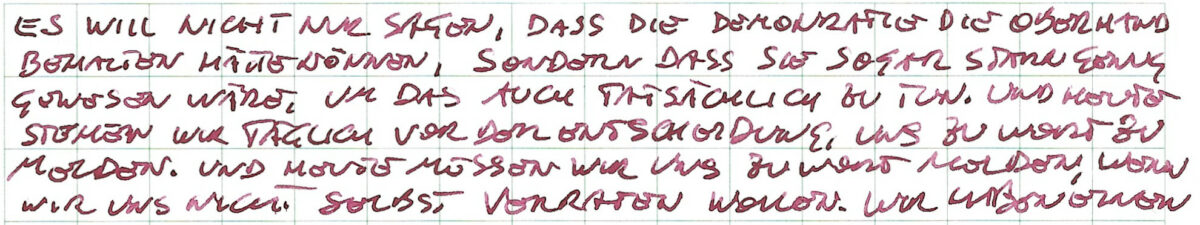 ES WILL NICHT NUR SAGEN, DASS DIE DEMOKRATIE DIE OBERHAND
BEHALTEN HÄTTE KÖNNEN, SONDERN DASS SIE SOGAR STARK GENUG
GEWESEN WÄRE, UM DAS AUCH TATSÄCHLICH ZU TUN. UND HEUTE
STEHEN WIR TÄGLICH VOR DER ENTSCHEIDUNG, UNS ZU WORT ZU
MELDEN. UND HEUTE MÜSSEN WIR UNS ZU WORT MELDEN, WENN
WIR UNS NICHT SELBST VERRATEN WOLLEN. WIR HABEN EINEN